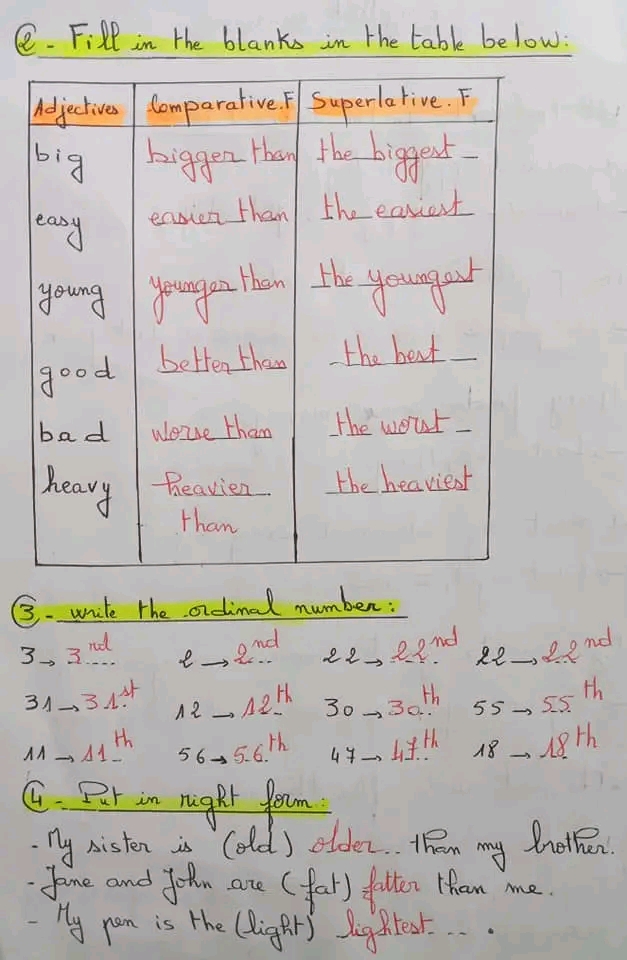 2 - Fill in the blanks in the table below:
Adjectives Comparative.F Superlative.F
big bigger than the biggest
easy easier than the easiest
young younger than the youngest
good better than the best
bad worse than the worst
heavy heavier the heaviest
than
3 - write the ordinal number:
3 → 3rd 2 → 2nd 22 → 22nd 22 → 22nd
31 → 31st 12 → 12th 30 → 30th 55 → 55th
11 → 11th 56 → 56th 47 → 47th 18 → 18th
4 - Put in right form:
- My sister is (old) older.. than my brother.
- Jane and John are (fat) fatter than me.
- My pen is the (light) lightest... .